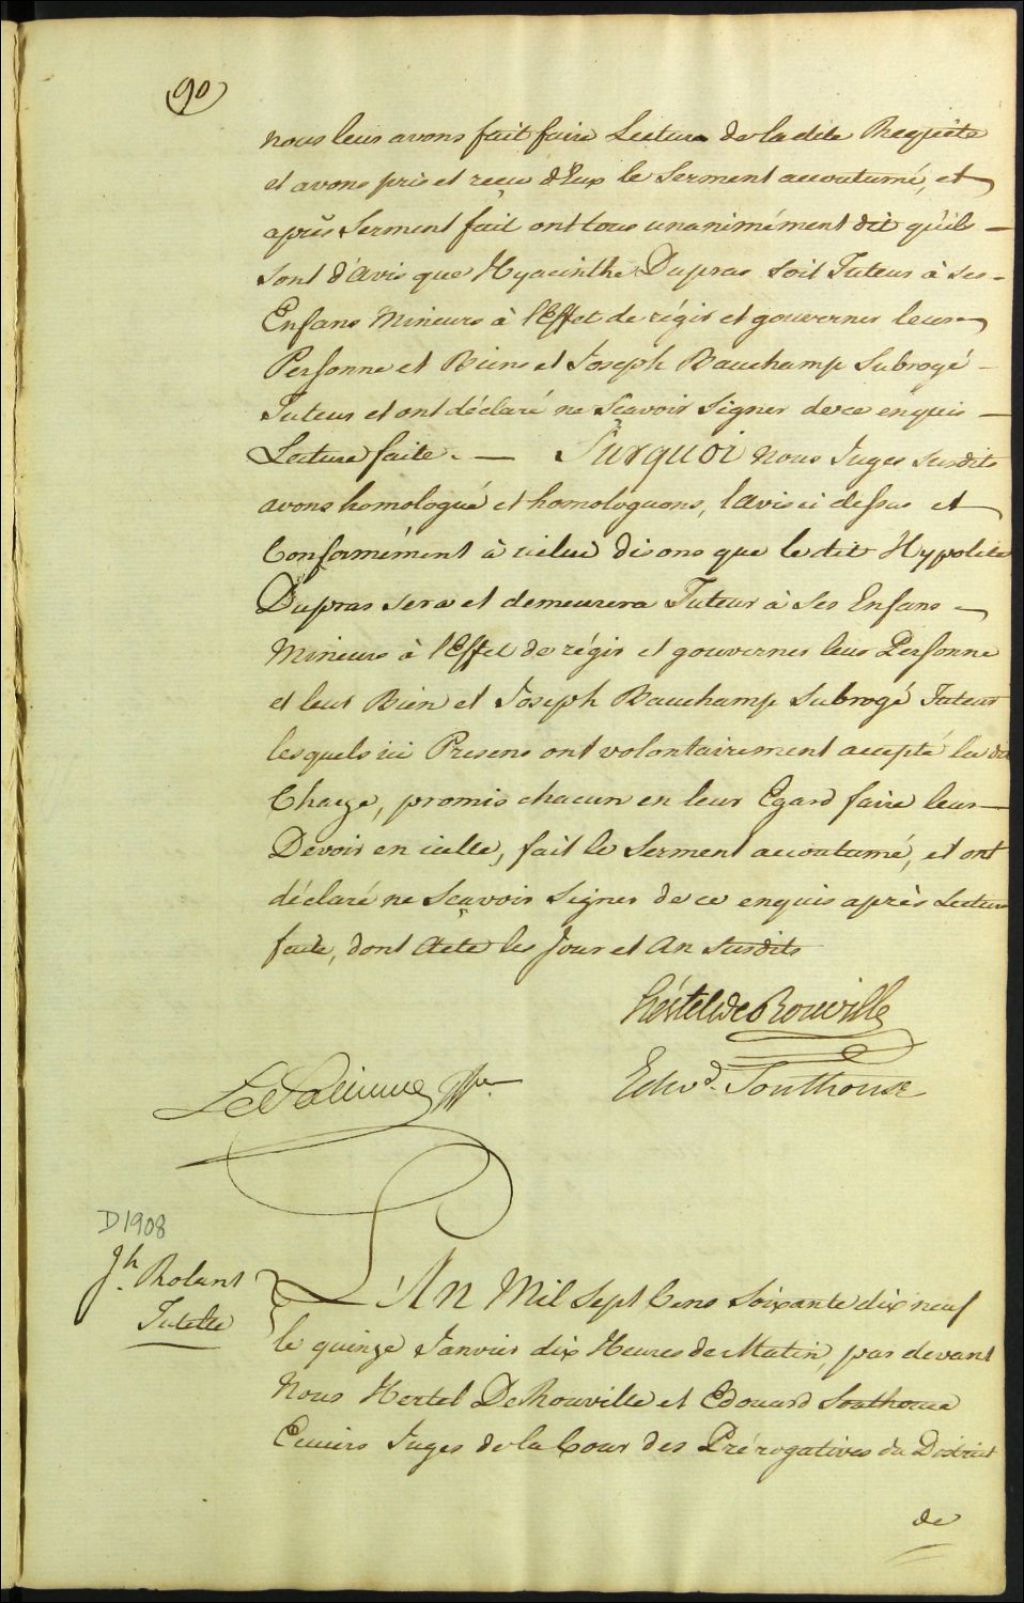 90
nous leur avons fait faire Lecture de la dite Requête
et avons pris et reçu d'Eux le Serment accoutumé, et
après Serment fait ont tous unanimément dit qu'ils —
sont d'avis que Hyacinthe Dupras soit Tuteur à ses -
Enfans Mineurs à l'Effet de régir et gouverner leurs
Personne et Biens et Joseph Bauchamp Subrogé -
Tuteur et ont déclaré ne Sçavoir Signer de ce enquis —
Lecture faite. — Surquoi nous Juges susdits
avons homologué et homologuons, l'avis ci dessus et
Conformément à icelui disons que le dit Hypolite
Dupras sera et demeurera Tuteur à Ses Enfans —
Mineurs à l'Effet de régir et gouverner leur Personne
et leur Bien et Joseph Bauchamp Subrogé Tuteur
lesquels ici Presens ont volontairement accepté la dte
Charge, promis chacun en leur Egard faire leur —
Devoir en icelle, fait le Serment accoutumé, et ont
déclaré ne Sçavoir Signer de ce enquis après Lecture
faite, dont Acte les Jour et An Susdits
hértel de Rouville
Edwd. Southouse
D1908
Jh. Rolant
Tutelle
L'An Mil Sept Cens Soixante dix neuf
le quinze Janvier dix Heures de Matin, par devant
Nous Hertel De Rouville et Edouard Southouse
Ecuiers Juges de la Cour des Prérogatives du District
de